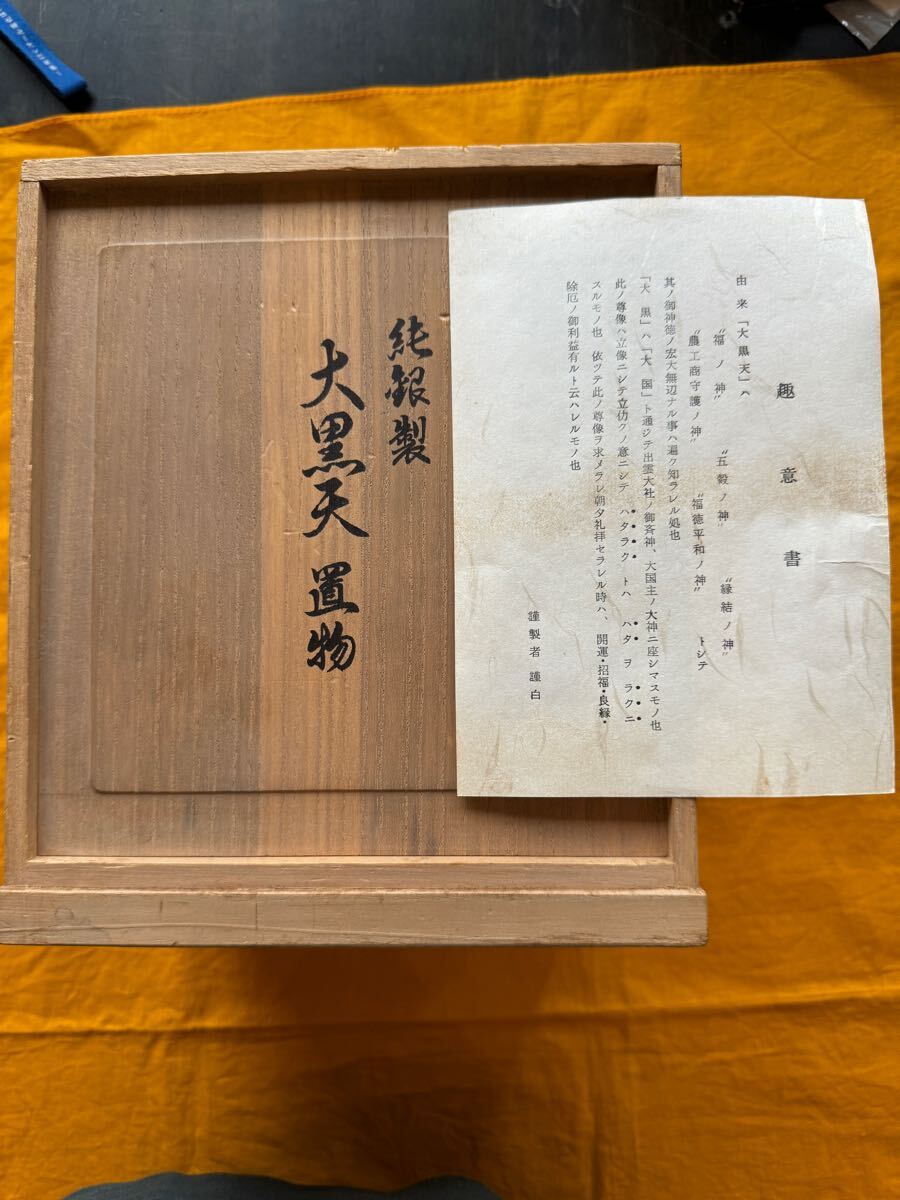 趣意書
由来「大黒天」ハ
“福ノ神” “五穀ノ神” “縁結ノ神”
“農工商守護ノ神” “福徳平和ノ神” トシテ
其ノ御神徳ノ宏大無辺ナル事ハ遍ク知ラレル処也
「大黒」ハ「大国」ト通ジテ出雲大社ノ御斉神、大国主ノ大神ニ座シマスモノ也
此ノ尊像ハ立像ニシテ立仂クノ意ニシテ ハタラクトハ ハタヲラクニ
スルモノ也 依ツテ此ノ尊像ヲ求メラレ朝夕礼拝セラレル時ハ、開運・招福・良縁・
除厄ノ御利益有ルト云ハレルモノ也
謹製者 謹白
純銀製
大黒天 置物